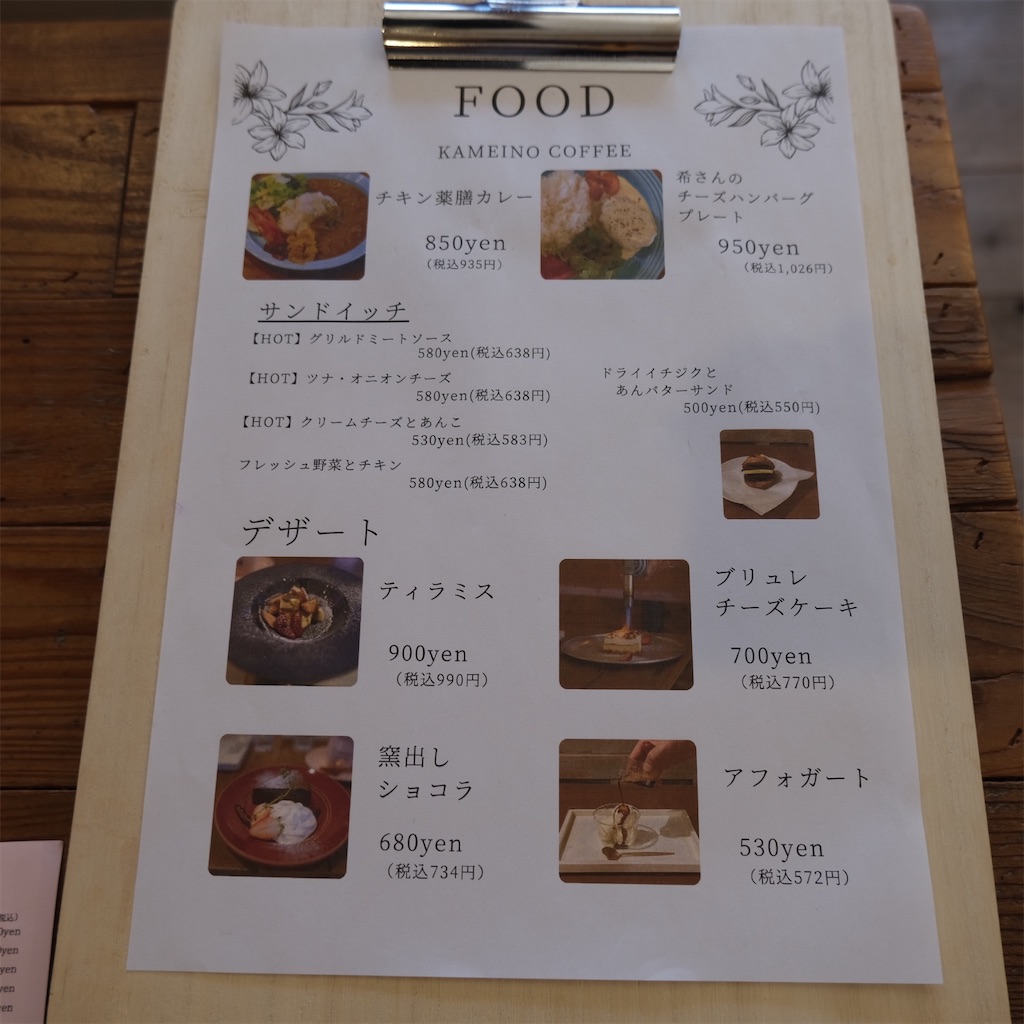 FOOD
KAMEINO COFFEE
チキン薬膳カレー
850yen
（税込935円）
希さんの
チーズハンバーグ
プレート
950yen
（税込1,026円）
サンドイッチ
【HOT】グリルドミートソース
580yen(税込638円)
【HOT】ツナ・オニオンチーズ
580yen(税込638円)
【HOT】クリームチーズとあんこ
530yen(税込583円)
フレッシュ野菜とチキン
580yen(税込638円)
ドライイチジクと
あんバターサンド
500yen(税込550円)
デザート
ティラミス
900yen
（税込990円）
ブリュレ
チーズケーキ
700yen
（税込770円）
窯出し
ショコラ
680yen
（税込734円）
アフォガート
530yen
（税込572円）
税込）
0yen
0yen
yen
yen
yen